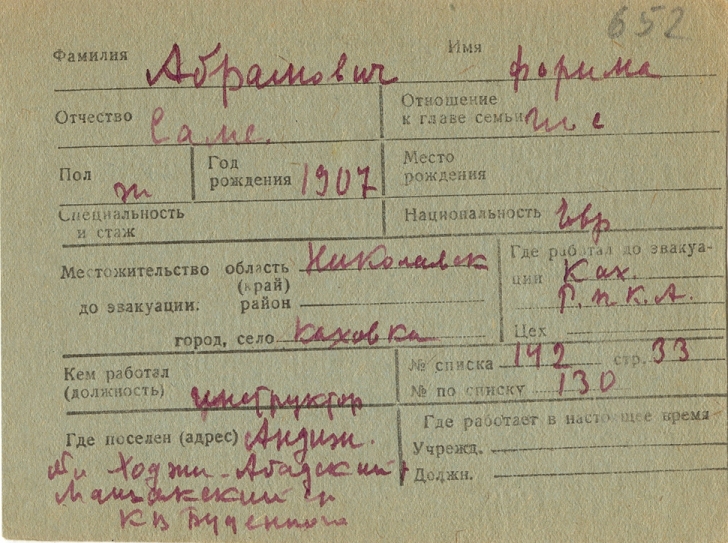 652
Фамилия Абрамович Имя Форима
Отчество Самс. Отношение
к главе семьи чл с
Пол ж Год
рождения 1907 Место
рождения
Специальность
и стаж Национальность евр
Местожительство область Николаевск
(край)
до эвакуации. район
город, село Каховка
Где работал до эвакуа-
ции Ках.
Р.п.К.А.
Цех
Кем работал
(должность) инструктор
№ списка 142 стр. 33
№ по списку 130
Где поселен (адрес) Андиж.
Ходжи-Абадский
КВ Буденного
Где работает в настоящее время
Учрежд.
Должн.